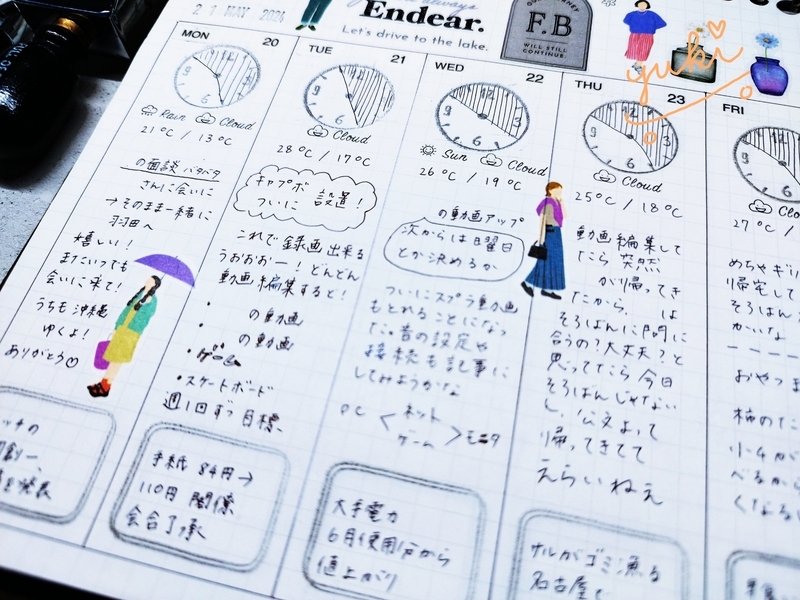 21 MAY 2024
always
Endear.
Let's drive to the lake.
F.B
WILL STILL
CONTINUE.
yuki
MON 20
Rain Cloud
21℃ / 13℃
の面談 バタバタ
さんに会いに
→そのまま一緒に
羽田へ
嬉しい！
またいつでも
会いに来て！
うちも沖縄
ゆくよ！
ありがとう♡
TUE 21
Cloud
28℃ / 17℃
キャプボ
ついに 設置！
これで録画出来る
うおおおー！どんどん
動画編集するど！
・ の動画
・ の動画
・ゲーム
・スケートボード
週1回ずつ目標、
手紙 84円→
110円 閣僚
会合了承
WED 22
Sun Cloud
26℃ / 19℃
の動画アップ
次からは日曜日
とか決めるか
ついにスプラ動画
もとれることになっ
た。音の設定や
接続も記事に
してみようかな
PC
ネット
ゲーム
モニタ
大手電力
6月使用分から
値上がり
THU 23
Cloud
25℃ / 18℃
動画編集して
たら突然
が帰ってき
たから、 は
そろばんに間に
合うの？大丈夫？と
思ってたら今日
そろばんじゃない
し、公文よって
帰ってきてて
えらいねぇ
サルがゴミ漁る
名古屋で
FRI
Cloud
27℃ /
めちゃギリ
帰宅して
そろばん
かいな
おやつ
柿のた
小4が
べるから
くなる